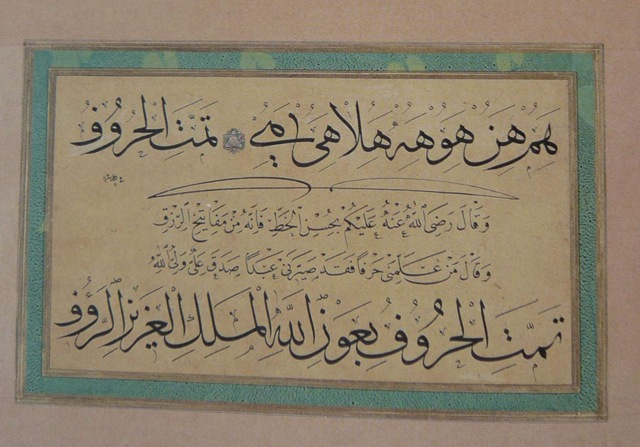 هم هن هو هه هلا هى لا ى تمت الحروف
وقال رضى الله عنه عليكم بحسن الخط فانه من مفاتيح الرزق
وقال من علمنى حرفا فقد صيرنى عبدا صدق على ولى الله
تمت الحروف بعون الله الملك العزيز الرؤوف